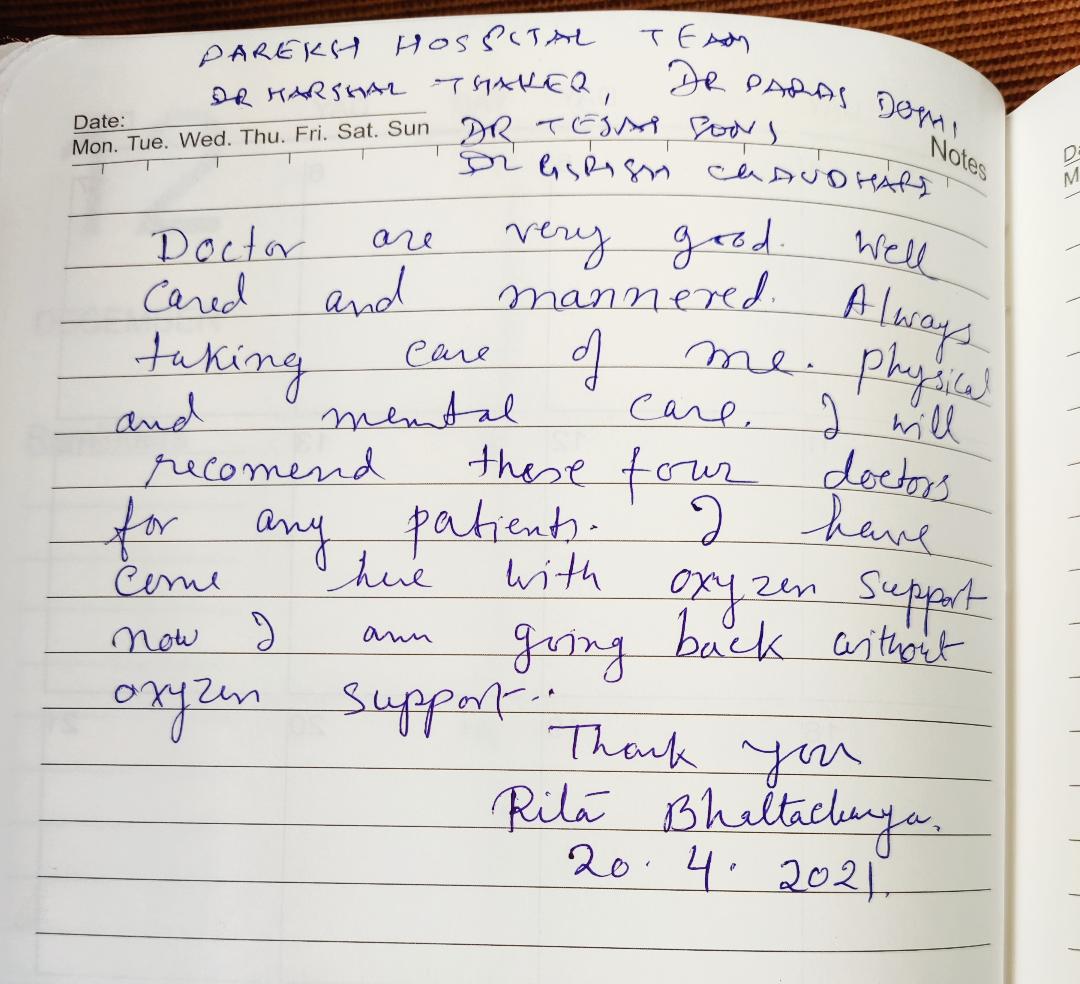 PAREKH HOSPITAL TEAM
DR HARSHAL THAKER, DR PARAS DOSHI
Date:
Mon. Tue. Wed. Thu. Fri. Sat. Sun
DR TEJAS SONI
Notes
DR GIRISH CHAUDHARI
Doctor are very good. Well
Cared and mannered. Always
taking care of me. physical
and mental care. I will
recomend these four doctors
for any patients. I have
Come here with oxyzen Support
now I am going back without
oxyzen support..
Thank you
Rita Bhattacharya.
20. 4. 2021.